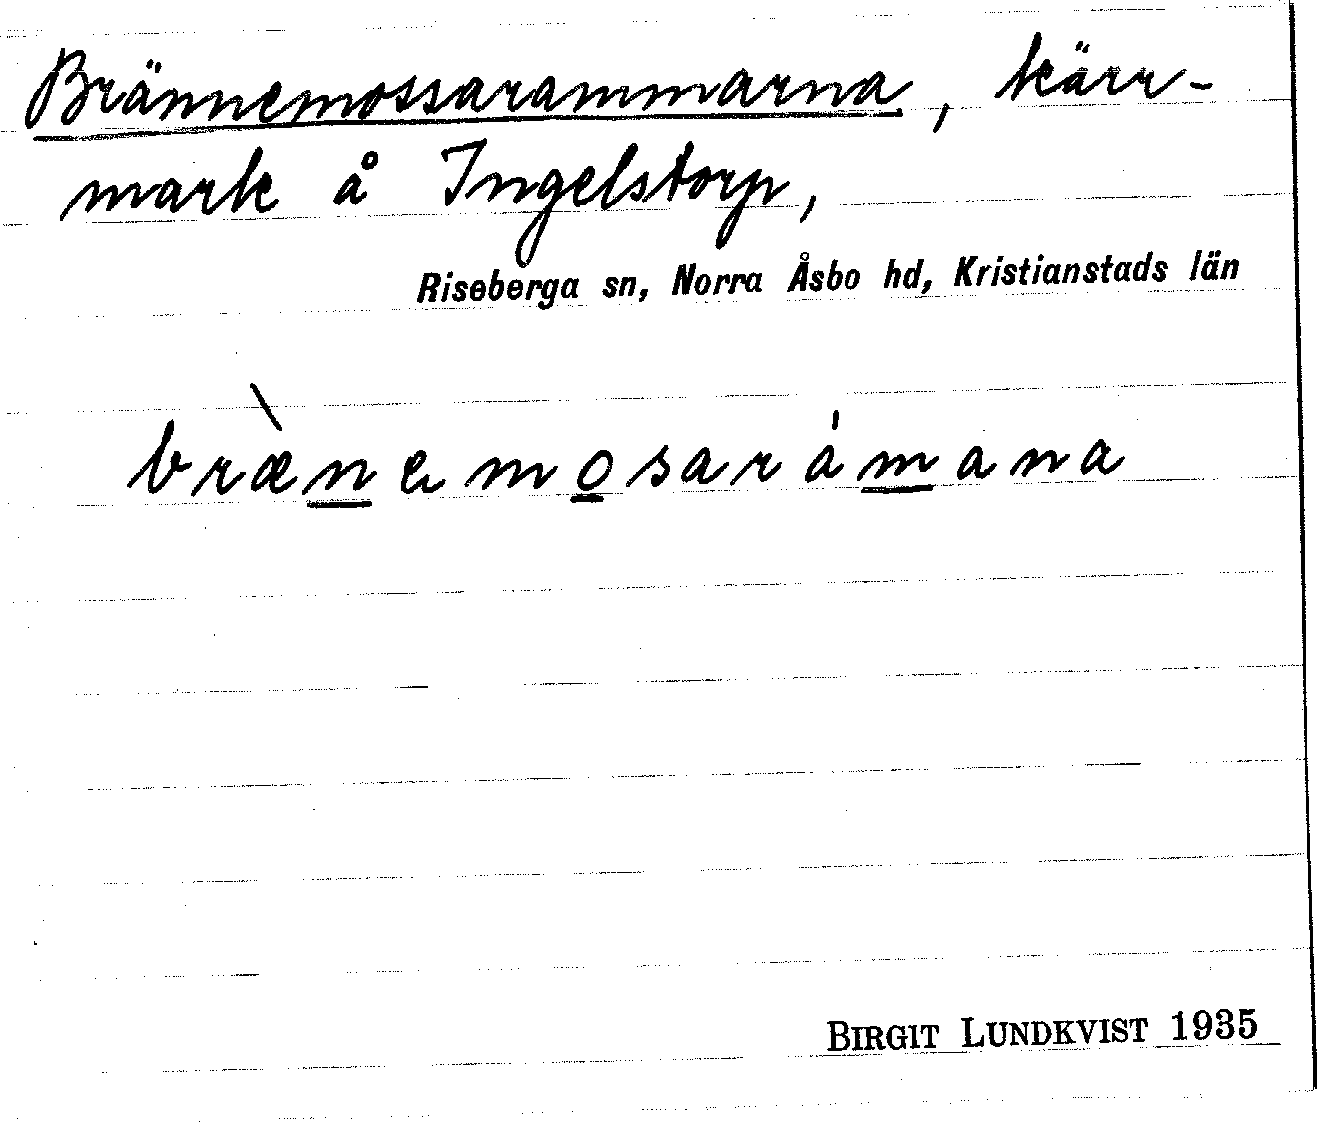 Brännemossarammarna, kärr-
mark å Ingelstorp,
Riseberga sn, Norra Åsbo hd, Kristianstads län
bræ̀nemosarámana
BIRGIT LUNDKVIST 1935